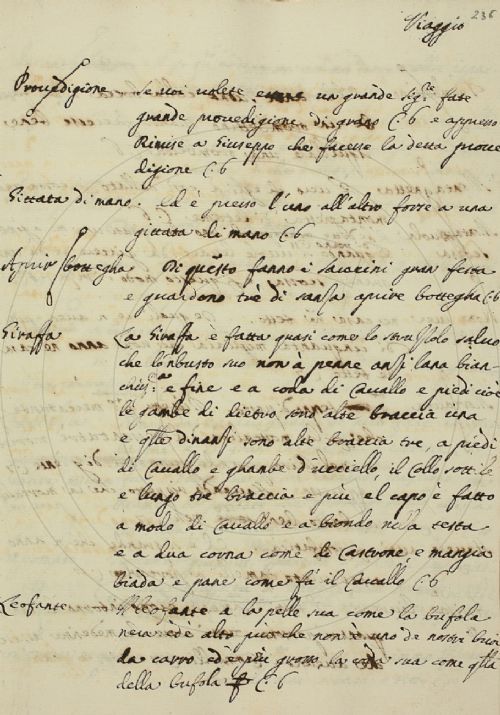 236
Viaggio
Provedigione Se voi volete essere un grande Sigre. fate
grande provedigione di grano C. 6 e appresso
Rimise a Giuseppo che facesse la detta prove
digione C. 6
Gittata di mano. Ed è presso l'uno all'altro forse a una
gittata di mano C. 6
Aprir bottegha Di questo fanno i Saracini gran festa
e guardono tre dì sanza aprire bottegha C. 6
Giraffa La Giraffa è fatta quasi come lo struzzolo salvo
che lo 'nbusto suo non à penne anzi lana bian-
chissa. e fine e a coda di Cavallo e piedi cioè
le gambe di dietro sono alte braccia una
e qlle dinanzi sono alte braccia tre, a piedi
di Cavallo e ghanbe d'uccello, il Collo sottile
e lungo tre braccia e più el capo è fatto
a modo di Cavallo e a biondo nella testa
e a dua corna come di Castrone, e mangia
biada e pane come fa il Cavallo C. 6
Leofante Il leofante a la pelle sua come la bufola
nera ed è alto più che non è uno de nostri buoi
da carro, ed è più grosso, la coda sua come qlla
della bufola C. 6